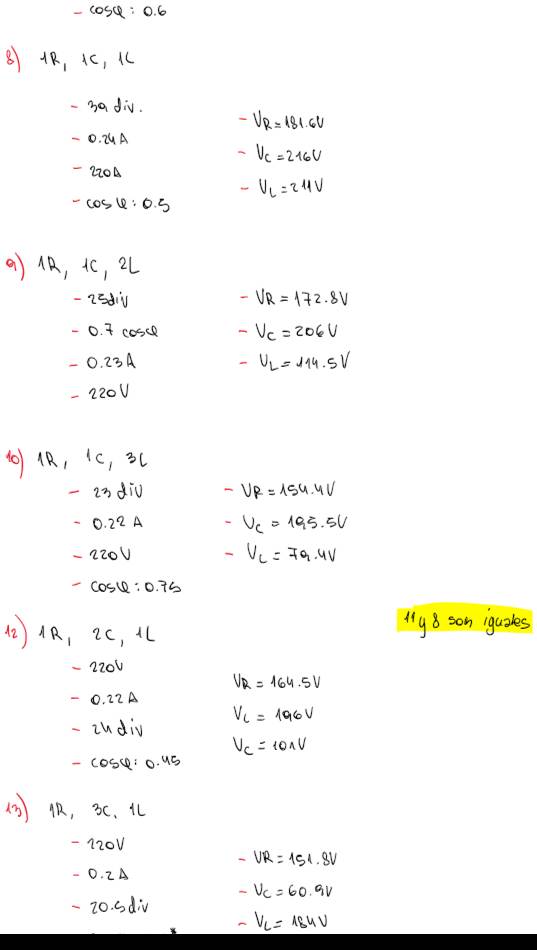 - cosφ: 0.6
8) 1R, 1C, 1L
- 39 div.
- 0.24A
- 220A
- cosφ: 0.5
- VR=181.6V
- VC=216V
- VL=211V
9) 1R, 1C, 2L
- 25div
- 0.7 cosφ
- 0.23A
- 220V
- VR=172.8V
- VC=206V
- VL=114.5V
10) 1R, 1C, 3L
- 23 div
- 0.22 A
- 220V
- cosφ: 0.75
- VR=154.4V
- VC=195.5V
- VL=79.4V
11 y 8 son iguales
12) 1R, 2C, 1L
- 220V
- 0.22A
- 24 div
- cosφ: 0.45
VR=164.5V
VL=196V
VC=101V
13) 1R, 3C, 1L
- 220V
- 0.2A
- 20.5div
- VR=151.8V
- VC=60.9V
- VL=184V